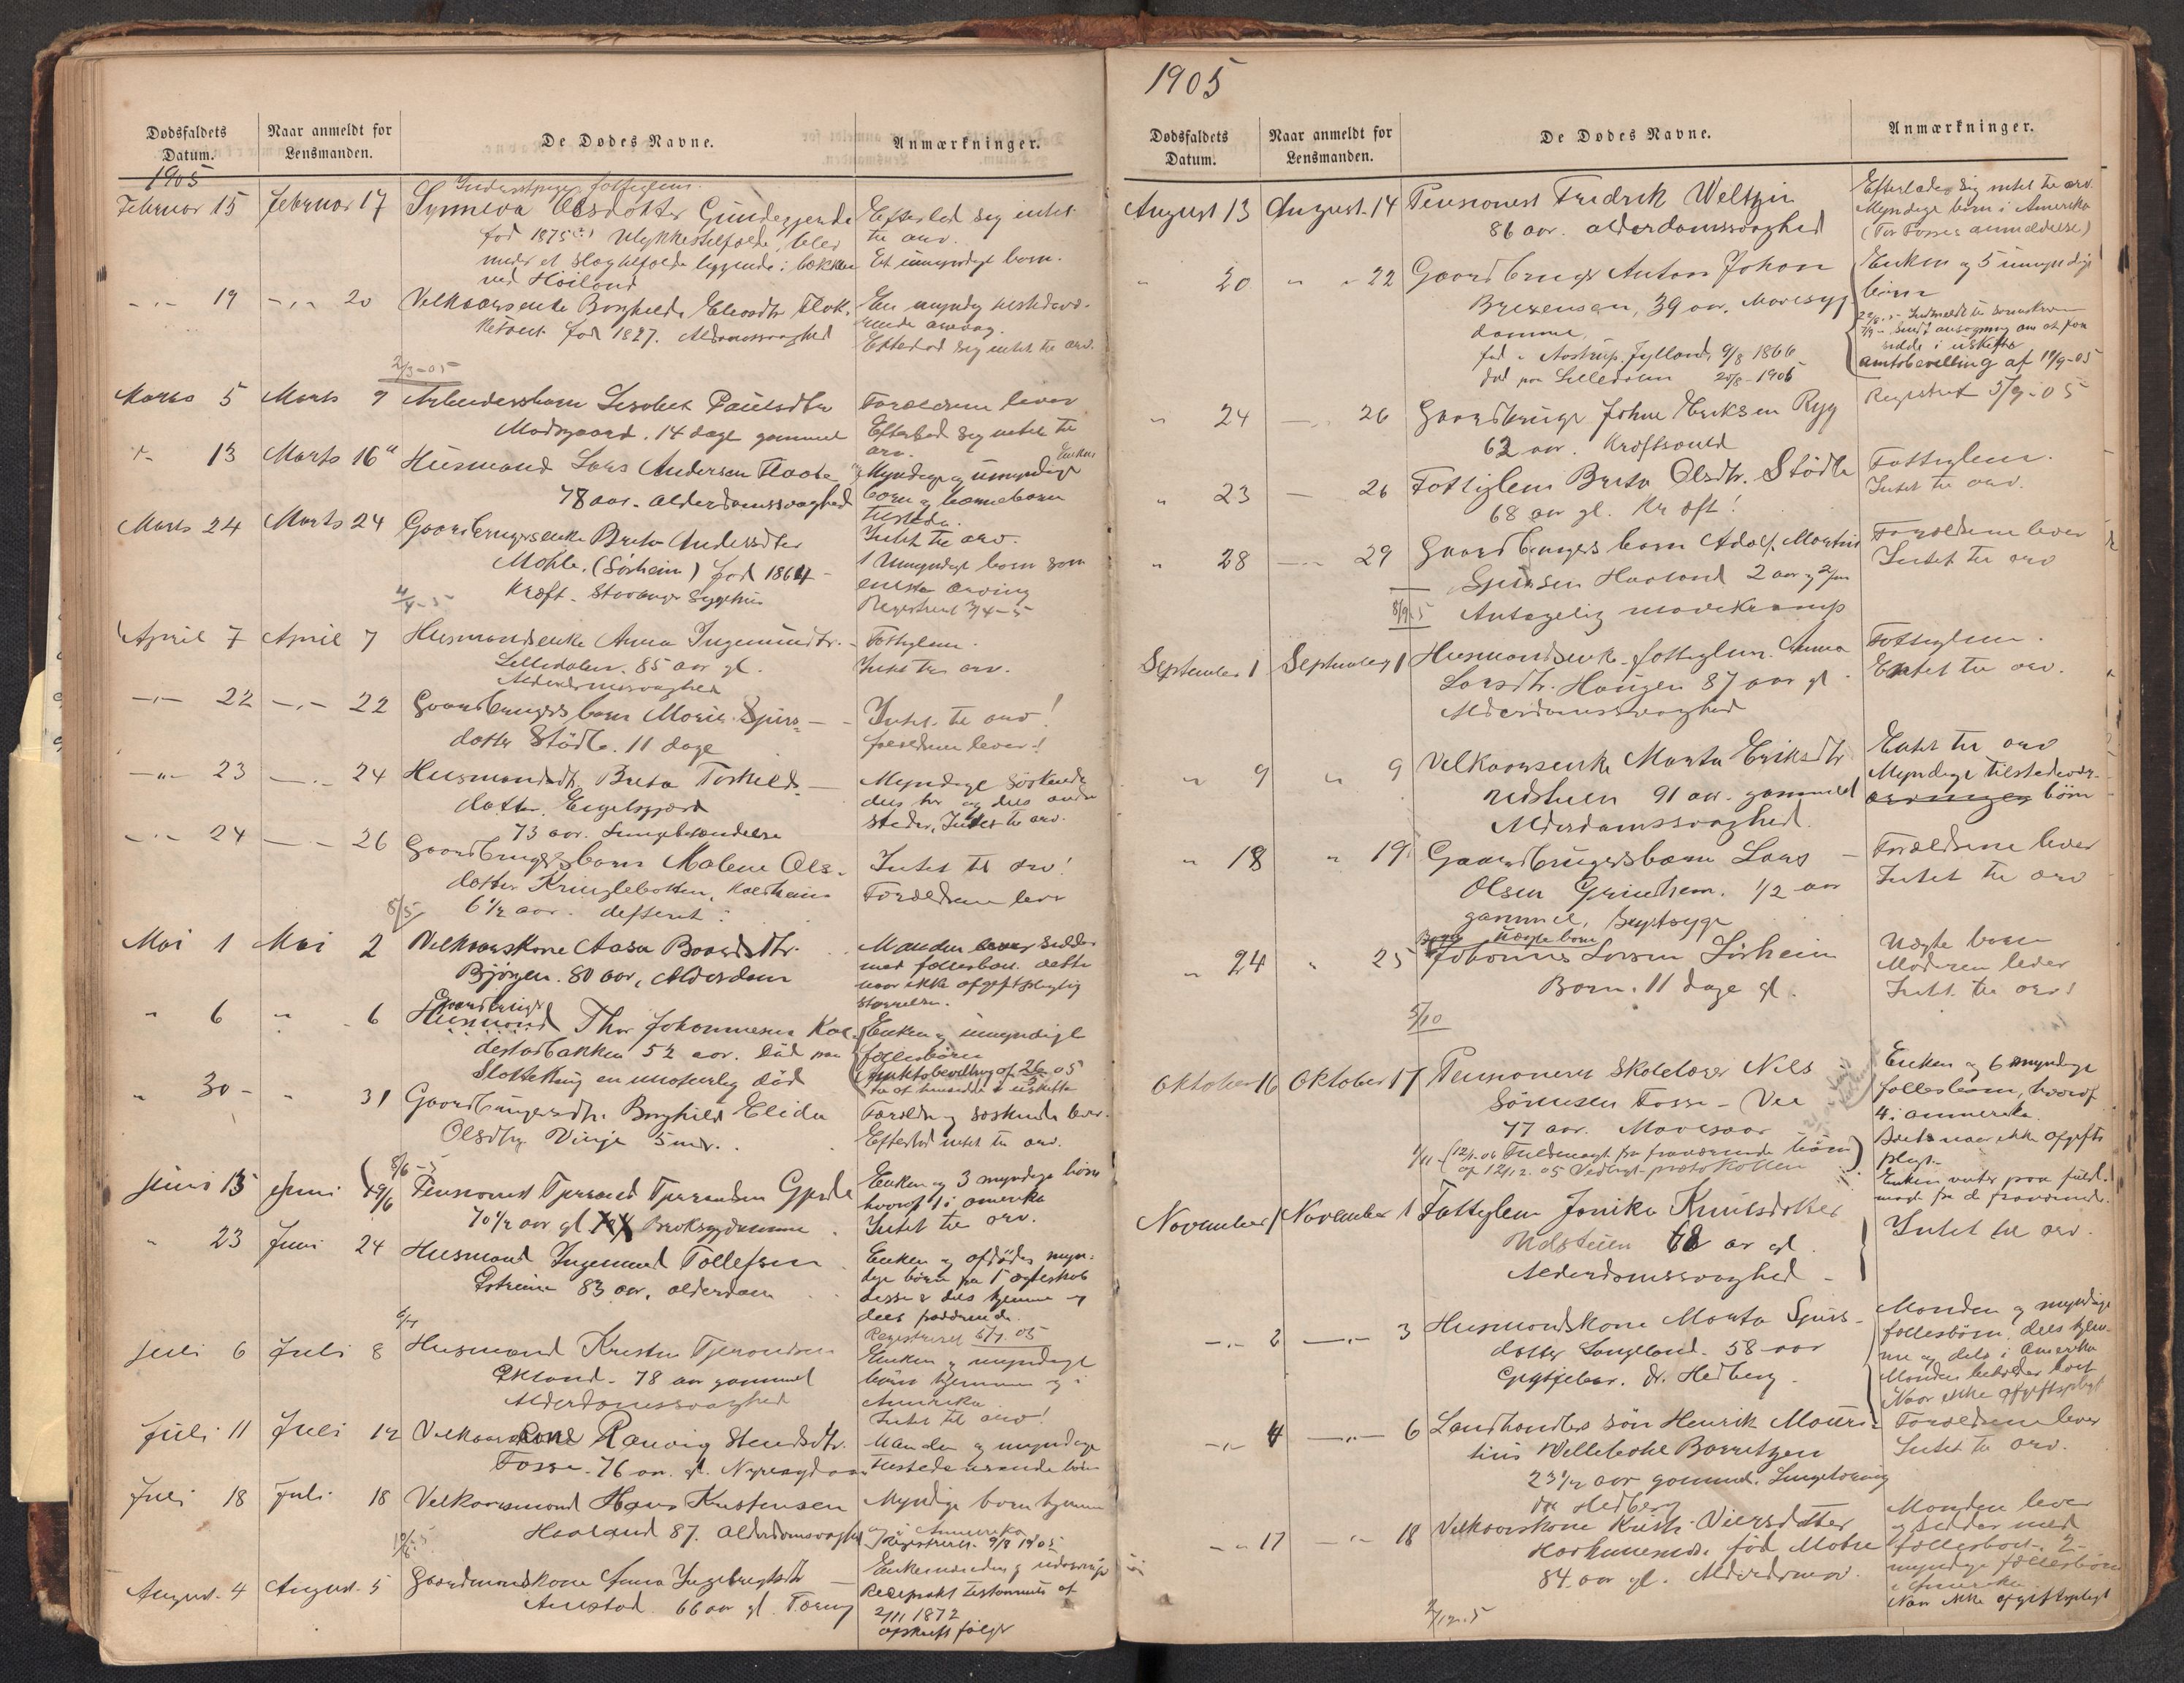 Dødsfaldets
Datum.
Naar anmeldt for
Lensmanden.
De Dødes Navne.
Anmærkninger.
1905
Februar 15 Februar 17 Synneva Olsdotter Gundegjerde
fød 1875 Ulykkestilfælde, blev
ved Høiland
Efterlod sig intet
til arv.
Et umyndigt barn.
19 20 Velkaarsenke Borghilda
fød 1827. Alderdomssvaghed
En myndig tilstedevæ-
rende arving.
Efterlod sig intet til arv.
2/3-05
Marts 5 Marts 7 Arbeidersbarn Lisabet Paulsdtr
Madsgaard. 14 dage gammel
Forældrene lever
Efterlod sig intet til
arv.
13 Marts 16 Husmand Lars Andersen Flaate
78 aar. alderdomssvaghed
Enken
Myndige og umyndige
børn og barnebørn
tilstede.
Intet til arv.
Marts 24 Marts 24 Gaardbrugersenke Brita Andersdtr
Mohle. (Sørheim) fød 1864
Kræft. Stavanger Sygehus
1 Umyndigt barn som
eneste arving
Registreret 3/4-5
4/4-5
April 7 April 7 Husmandsenke Anna Ingemundtr.
Lilledalen. 85 aar gl.
Alderdomssvaghed
Fattiglem.
Intet til arv.
22 22 Gaardbrugersbarn Marie Sjurs-
datter Stødle. 11 dage
Intet til arv!
forældrene lever!
23 24 Husmandsdtr. Brita Torkilds-
datter Engelsgjerd
73 aar. Lungebetændelse
Myndige søskende
dels her og dels andre
steder, Intet til arv.
24 26 Gaardbrugersbarn Malene Ols-
datter Kringlebotten,
6 1/2 aar. defterit
Intet til arv!
Forældrene lever
8/5
Mai 1 Mai 2 Velkaarskone Aasa Baardsdtr.
Bjørgen. 80 aar, Alderdom
Manden lever sidder
med fællesboet. dette
naar ikke afgiftspligtig
størrelse.
6 6 Gaardbruger
Husmand Thor Johannesen
52 aar. død paa
en unaturlig død
Enken og umyndige
fællesbørn
amtsbevilling af 26/5 05
til at hensidde i uskifte
30 31 Gaardbrugersdtr. Borghild Elida
Olsdtr. Vinje 5 md.
Forældre og søskende lever.
Efterlod intet til arv.
8/6-5
Juni 15 Juni 19/6 Pensionist Tjerand Tjerandsen Gjerde
70 1/2 aar gl. Broksygdomme
Enken og 3 myndige børn
hvoraf 1 i amerika
Intet til arv.
23 Juni 24 Husmand Ingemund Tollefsen
Østreim 83 aar, alderdom
Enken og afdødes myn-
dige børn fra 1 ægteskab
disse er dels hjemme og
dels fraværende.
Registreret 5/7. 05
6/7
Juli 6 Juli 8 Husmand Kristen Tjerandsen
Ekland. 78 aar gammel
Alderdomssvaghed
Enken og myndige
børn hjemme og i
Amerika
Intet til arv!
Juli 11 Juli 12 Velkaarskone Ranvig Stensdtr.
Fosse. 76 aar. gl. Nyresygdom
Manden og myndige
tilstedeværende børn
Juli 18 Juli 18 Velkaarsmand Hans Kristensen
Haaland 87. alderdomssvaghed
Myndige børn hjemme
og i Amerika
Registreret. 9/8 1905
August. 4 August. 5 Gaardmandskone Anna Ingebrigtsdtr
Aurstad. 66 aar gl. Tæring
Enkemanden og udarvinge
Resiprokt testamente af
2/11 1872
afskrift følger
1905
Dødsfaldets
Datum.
Naar anmeldt for
Lensmanden.
De Dødes Navne.
Anmærkninger.
August 13 August 14 Pensionist Fredrik Weltzin
86 aar. alderdomssvaghed
Efterlader sig intet til arv.
Myndige børn i Amerika
(Tor Fosses anmeldelse)
20 22 Gaardbruger Anton Johan
Brexensen, 39 aar, Mavesyg-
domme,
fød i Aastrup. Jylland, 9/8 1866
død paa Lilledalen 20/8-1905
Enken og 5 umyndige
børn
Sendt ansøgning om at faa
sidde i uskifte
amtsbevilling af 11/9-05
24 26 Gaardbruger Johne Eriksen Ryg
62 aar. Kræftsaard
Registreret 5/9-05
23 26 Fattiglem Brita Olsdtr. Stødle
68 aar gl. Kræft!
Fattiglem.
Intet til arv.
28 29 Gaardbrugers barn Adolf Martin
Sjursen Haaland 2 aar og 2/m
Antagelig mavekrampe
Forældrene lever
Intet til arv
8/9-5
September 1 September 1 Husmandsenke fattiglem. Anna
Larsdtr. Haugen 87 aar gl.
Alderdomssvaghed
Fattiglem.
Intet til arv.
9 9 Velkaarsenke Marta Eriksdtr
Udstuen 91 aar. gammel
Alderdomssvaghed.
Intet til arv
Myndige tilstedevær.
arvinger børn
18 19 Gaardbrugersbarn Lars
Olsen Grindheim. 1/2 aar
gammel, Brystsyge
Forældrene lever
Intet til arv
24 25 uægte barn
Johannes Larsen Sørheim
Barn. 11 dage gl.
Uægte barn
Moderen lever
Intet til arv!
5/10
Oktober 16 Oktober 17 Pensioneret Skolelærer Nils
Sørensen Fosse - Vee
77 aar. Mavesaar
12/1-06 Fuldmagt fra fraværende børn
af 12/12.05 Vedlagt protokollen
Enken og 6 myndige
fællesbørn, hvoraf
4 i amerika.
Boet naar ikke afgifts
pligt.
Enken venter paa fuld-
magt fra de fraværende.
November 1 November 1 Fattiglem Jonika Knutsdotter
Udstuen 68 ar gl.
Alderdomssvaghed
Intet til arv.
2 3 Husmandskone Marta Sjurs-
datter Langeland. 58 aar
Gigtfeber. Dr. Hedberg.
Manden og myndige
fællesbørn, dels hjem-
me og dels i Amerika
Manden beholder boet
Naar ikke afgiftspligt
4 6 Landhandlers søn Henrik Mauri-
tius Willebohl Barritzen
23 1/2 aar gammel. Lungetæring
Dr Hedberg
Forældrene lever
Intet til arv.
17 18 Velkaarskone Kristi Viersdotter
fød Mohre
84 aar gl. Alderdomsv.
Manden lever
og sidder med
fællesboet. 2
myndige fællesbørn
i Amerika
Naar ikke afgiftspligt
2/12-5